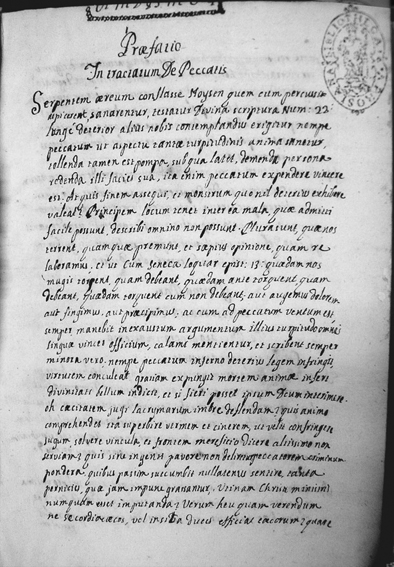 Præfatio
In tractatum De Peccatis
Serpentem æreum conflasse Moysen quem cum percussi
aspicerent sanarentur, testatur Divina scriptura Num: 22:
longe deterior alius nobis contemplandus erigitur nempe
peccatum ut aspectu tantæ turpitudinis anima sanetur,
tollenda tamen est pompa, sub qua latet, demenda persona
redenda illi facies sua, ita enim peccatum expendere vincere
est. At quis finem assequi, et monstrum quo nil deterius exhibere
valeat? Principem locum tenet inter ea mala, quæ admitti
facile possunt, describi omnino non possunt. Plura sunt, quæ nos
terrent, quam quæ premunt, et sæpius opinione, quam re
laboramus. et ut Cum Seneca loquar epist: 13: quædam nos
magis torquent, quam debeant, quædam ante torquent, quam
debeant, quædam torquent cum non debeant, aut augemus dolorem
aut fingimus, aut præcipimus, ac cum ad peccatum ventum est
semper manebit inexaustum argumentum illius turpitudo omnis
linguæ vincet officium, calami et scribent semper
minora vero, nempe peccatum inferno deterius legem infringit
virtutem conculcat gratiam expungit mortem animæ infert
divinitati bellum indicit, et si fieri posset ipsum Deum
oh cæcitatem jugi lacrymarum imbre deflendam? quis animo
comprehendet ita superbire vermem et cinerem, ut velit confringere
jugum, solvere vincula, et frontem dicere altissimo non
serviam? quis sine ingenti pavore non peccatorem criminum
pondera, quibus passim succumbit nullatenus sentire
pernicies, quæ jam impune grassantur. Utinam Christi
numquam esset imputanda? Verum heu quam verendum
ne sæcos, vel duces efficiat cæcorum? quare